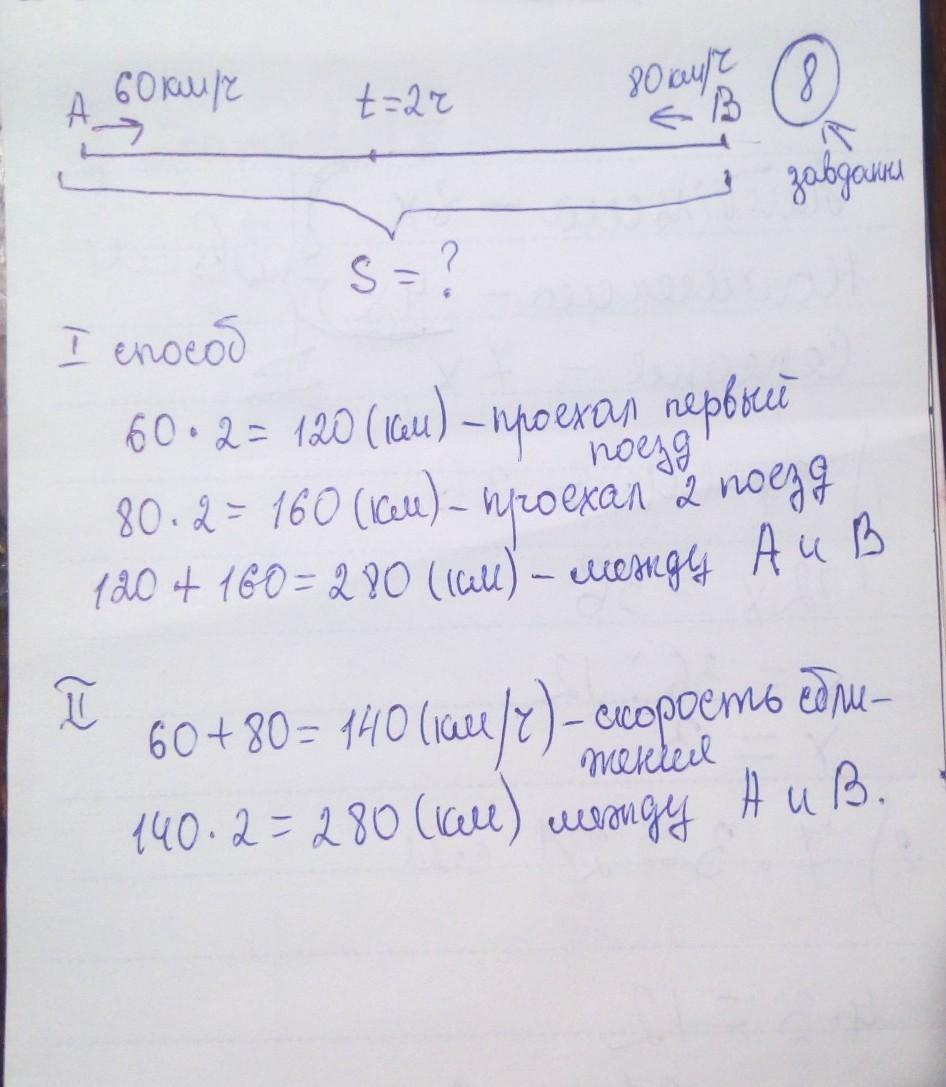 60км/ч t=2ч 80км/ч 8
A B
завдання
S = ?
I способ
60 · 2 = 120 (км) – проехал первый
поезд
80 · 2 = 160 (км) – проехал 2 поезд
120 + 160 = 280 (км) – между A и B
II
60 + 80 = 140 (км/ч) – скорость сбли-
жения
140 · 2 = 280 (км) между A и B.